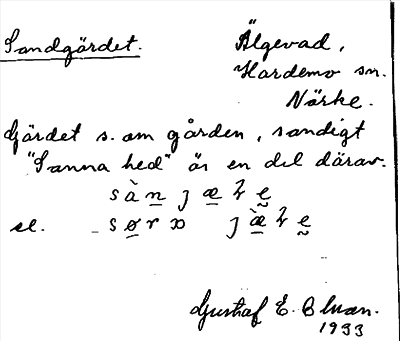 Sandgärdet.
Älgevad,
Hardemo sn.
Närke.
Gärdet s. om gården, sandigt
"Sanna hed" är en del därav.
se.
Gustaf E. Bluan.
1933